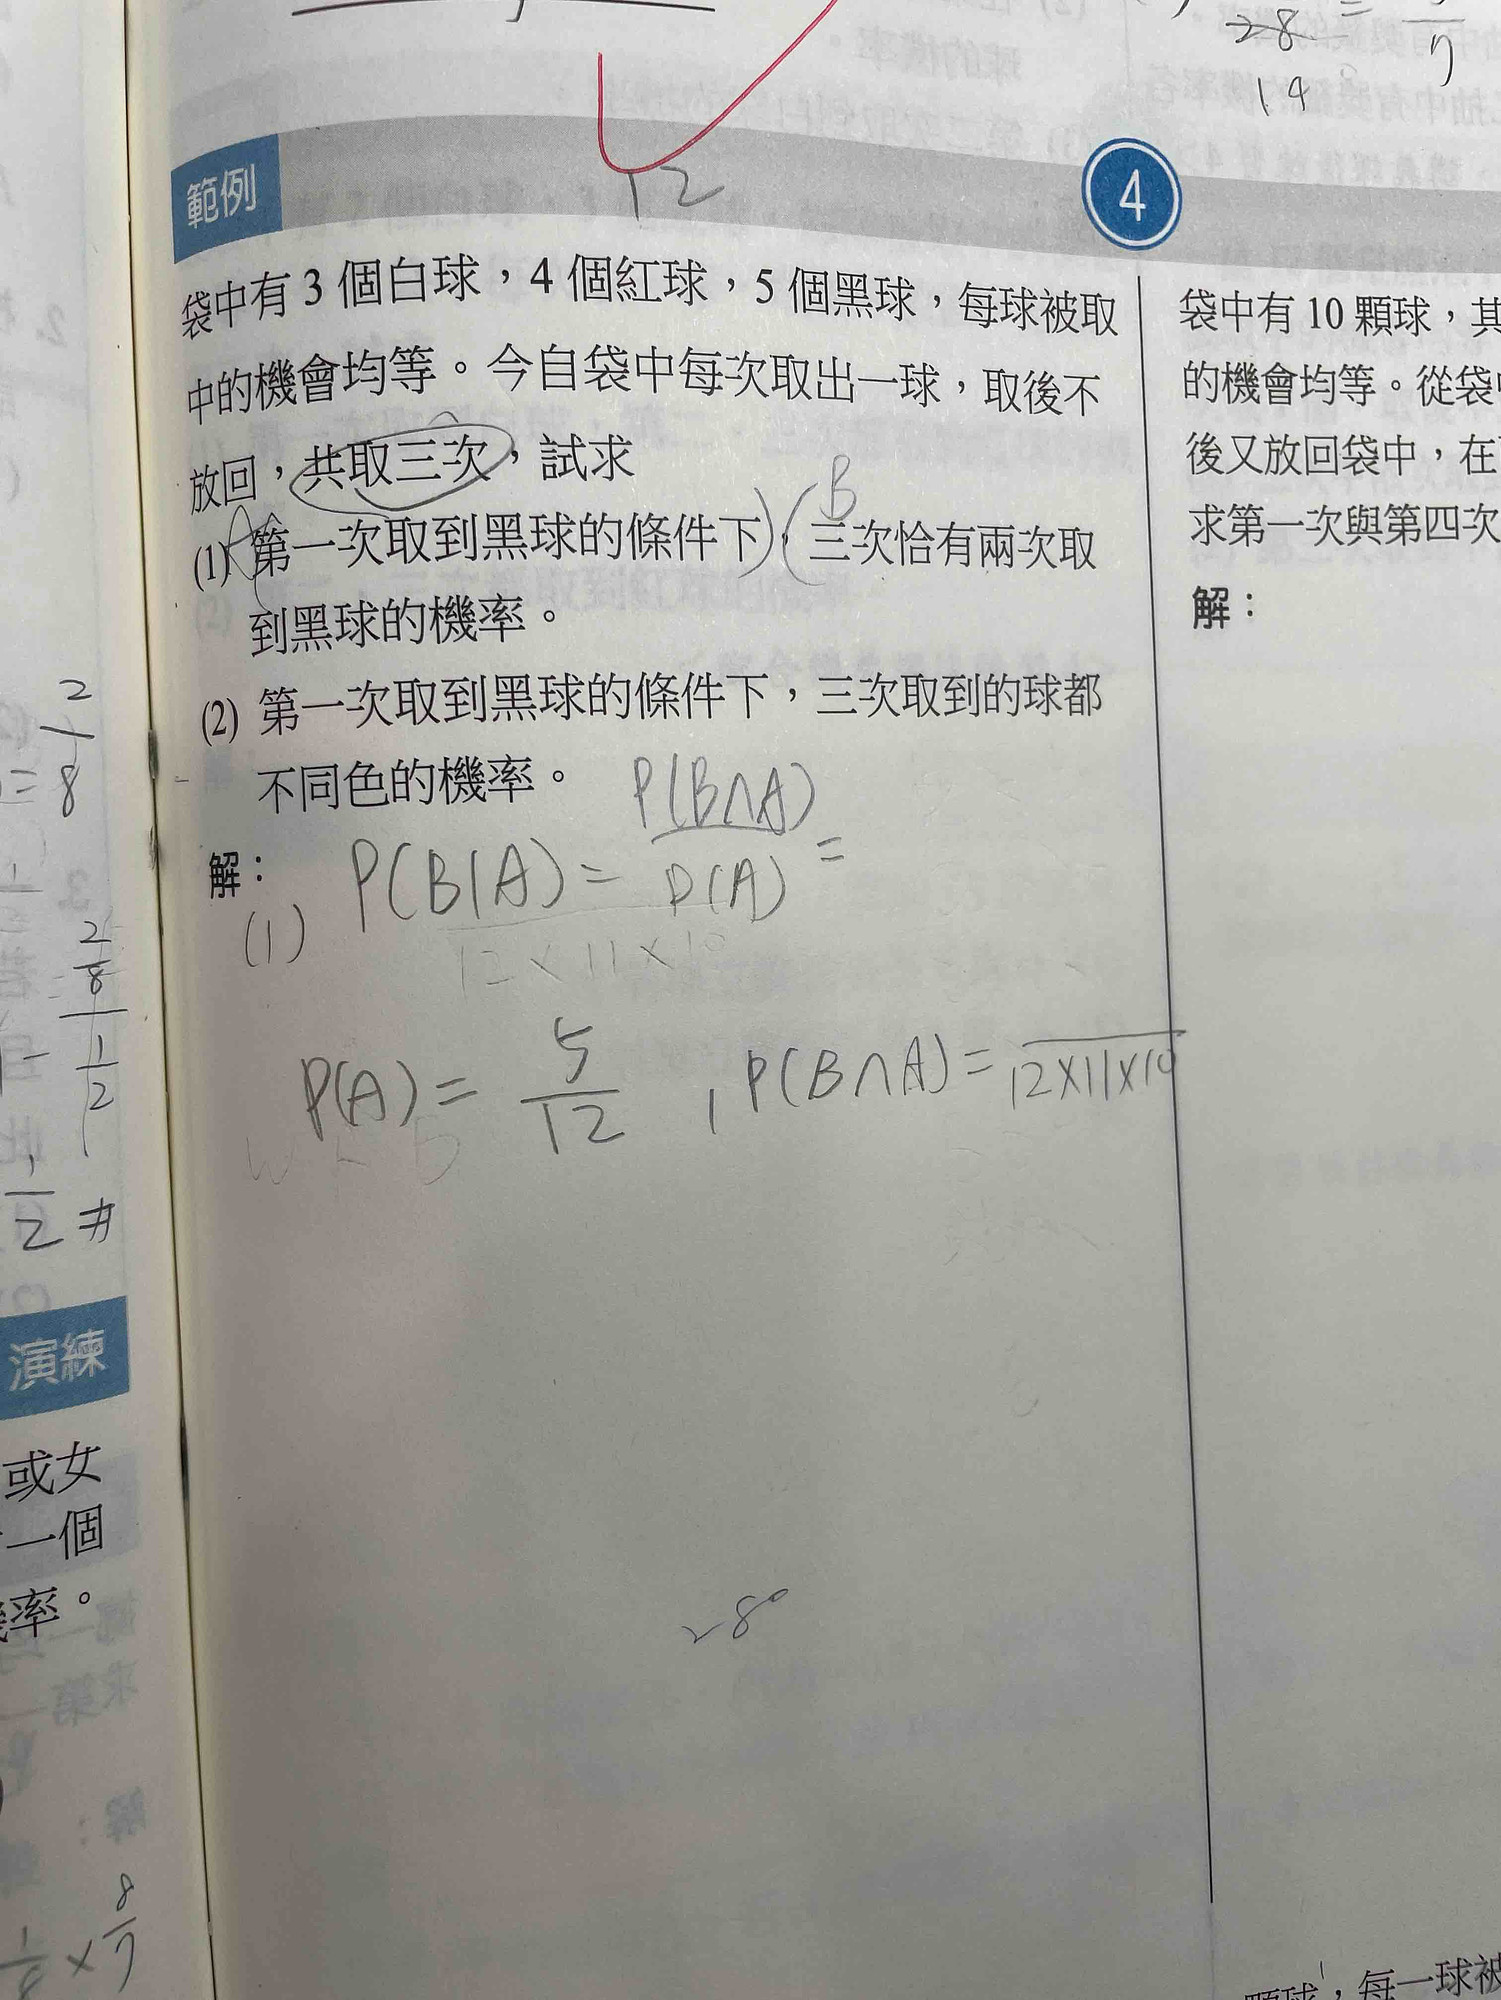 28 =
14
7
12
範例
4
袋中有 3 個白球，4 個紅球，5 個黑球，每球被取
中的機會均等。今自袋中每次取出一球，取後不
放回，共取三次，試求
A B
(1) 第一次取到黑球的條件下，三次恰有兩次取
到黑球的機率。
(2) 第一次取到黑球的條件下，三次取到的球都
不同色的機率。
解：
(1) P(B|A) = P(B∩A) / P(A) =
12×11×10
P(A) = 5/12 , P(B∩A) = /12×11×10
280
袋中有 10 顆球，其
的機會均等。從袋
後又放回袋中，在
求第一次與第四次
解：
顆球，每一球被
2
8
2/8
1/2
1/2 #
演練
或女
一個
率。
1/8 × 8/7